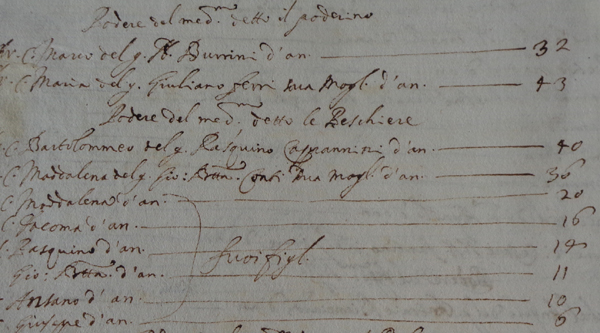 Podere del med.mo detto il poderino
C. Marco del q. Burrini d'an. 32
C. Maria del q. Giuliano ferri sua Mogl. d'an. 43
Podere del med.mo detto le Peschiere
C. Bartolommeo del q. Pasquino Capannini d'an. 40
C. Maddalena del q. Gio: Batta. Conti sua Mogl. d'an. 36
C. Maddalena d'an. 20
C. Jacoma d'an. 16
Pasquino d'an. 14
suoi figl.
Gio: Batta. d'an. 11
Ansano d'an. 10
Giuseppe d'an. 6